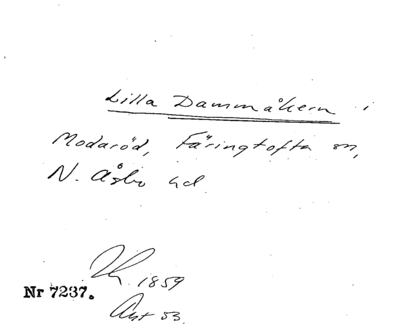 Lilla Dammåkern i
Modaröd, Färingtofta sn,
N. Åsbo hd
1859
Nr 7237.
Avt 53.